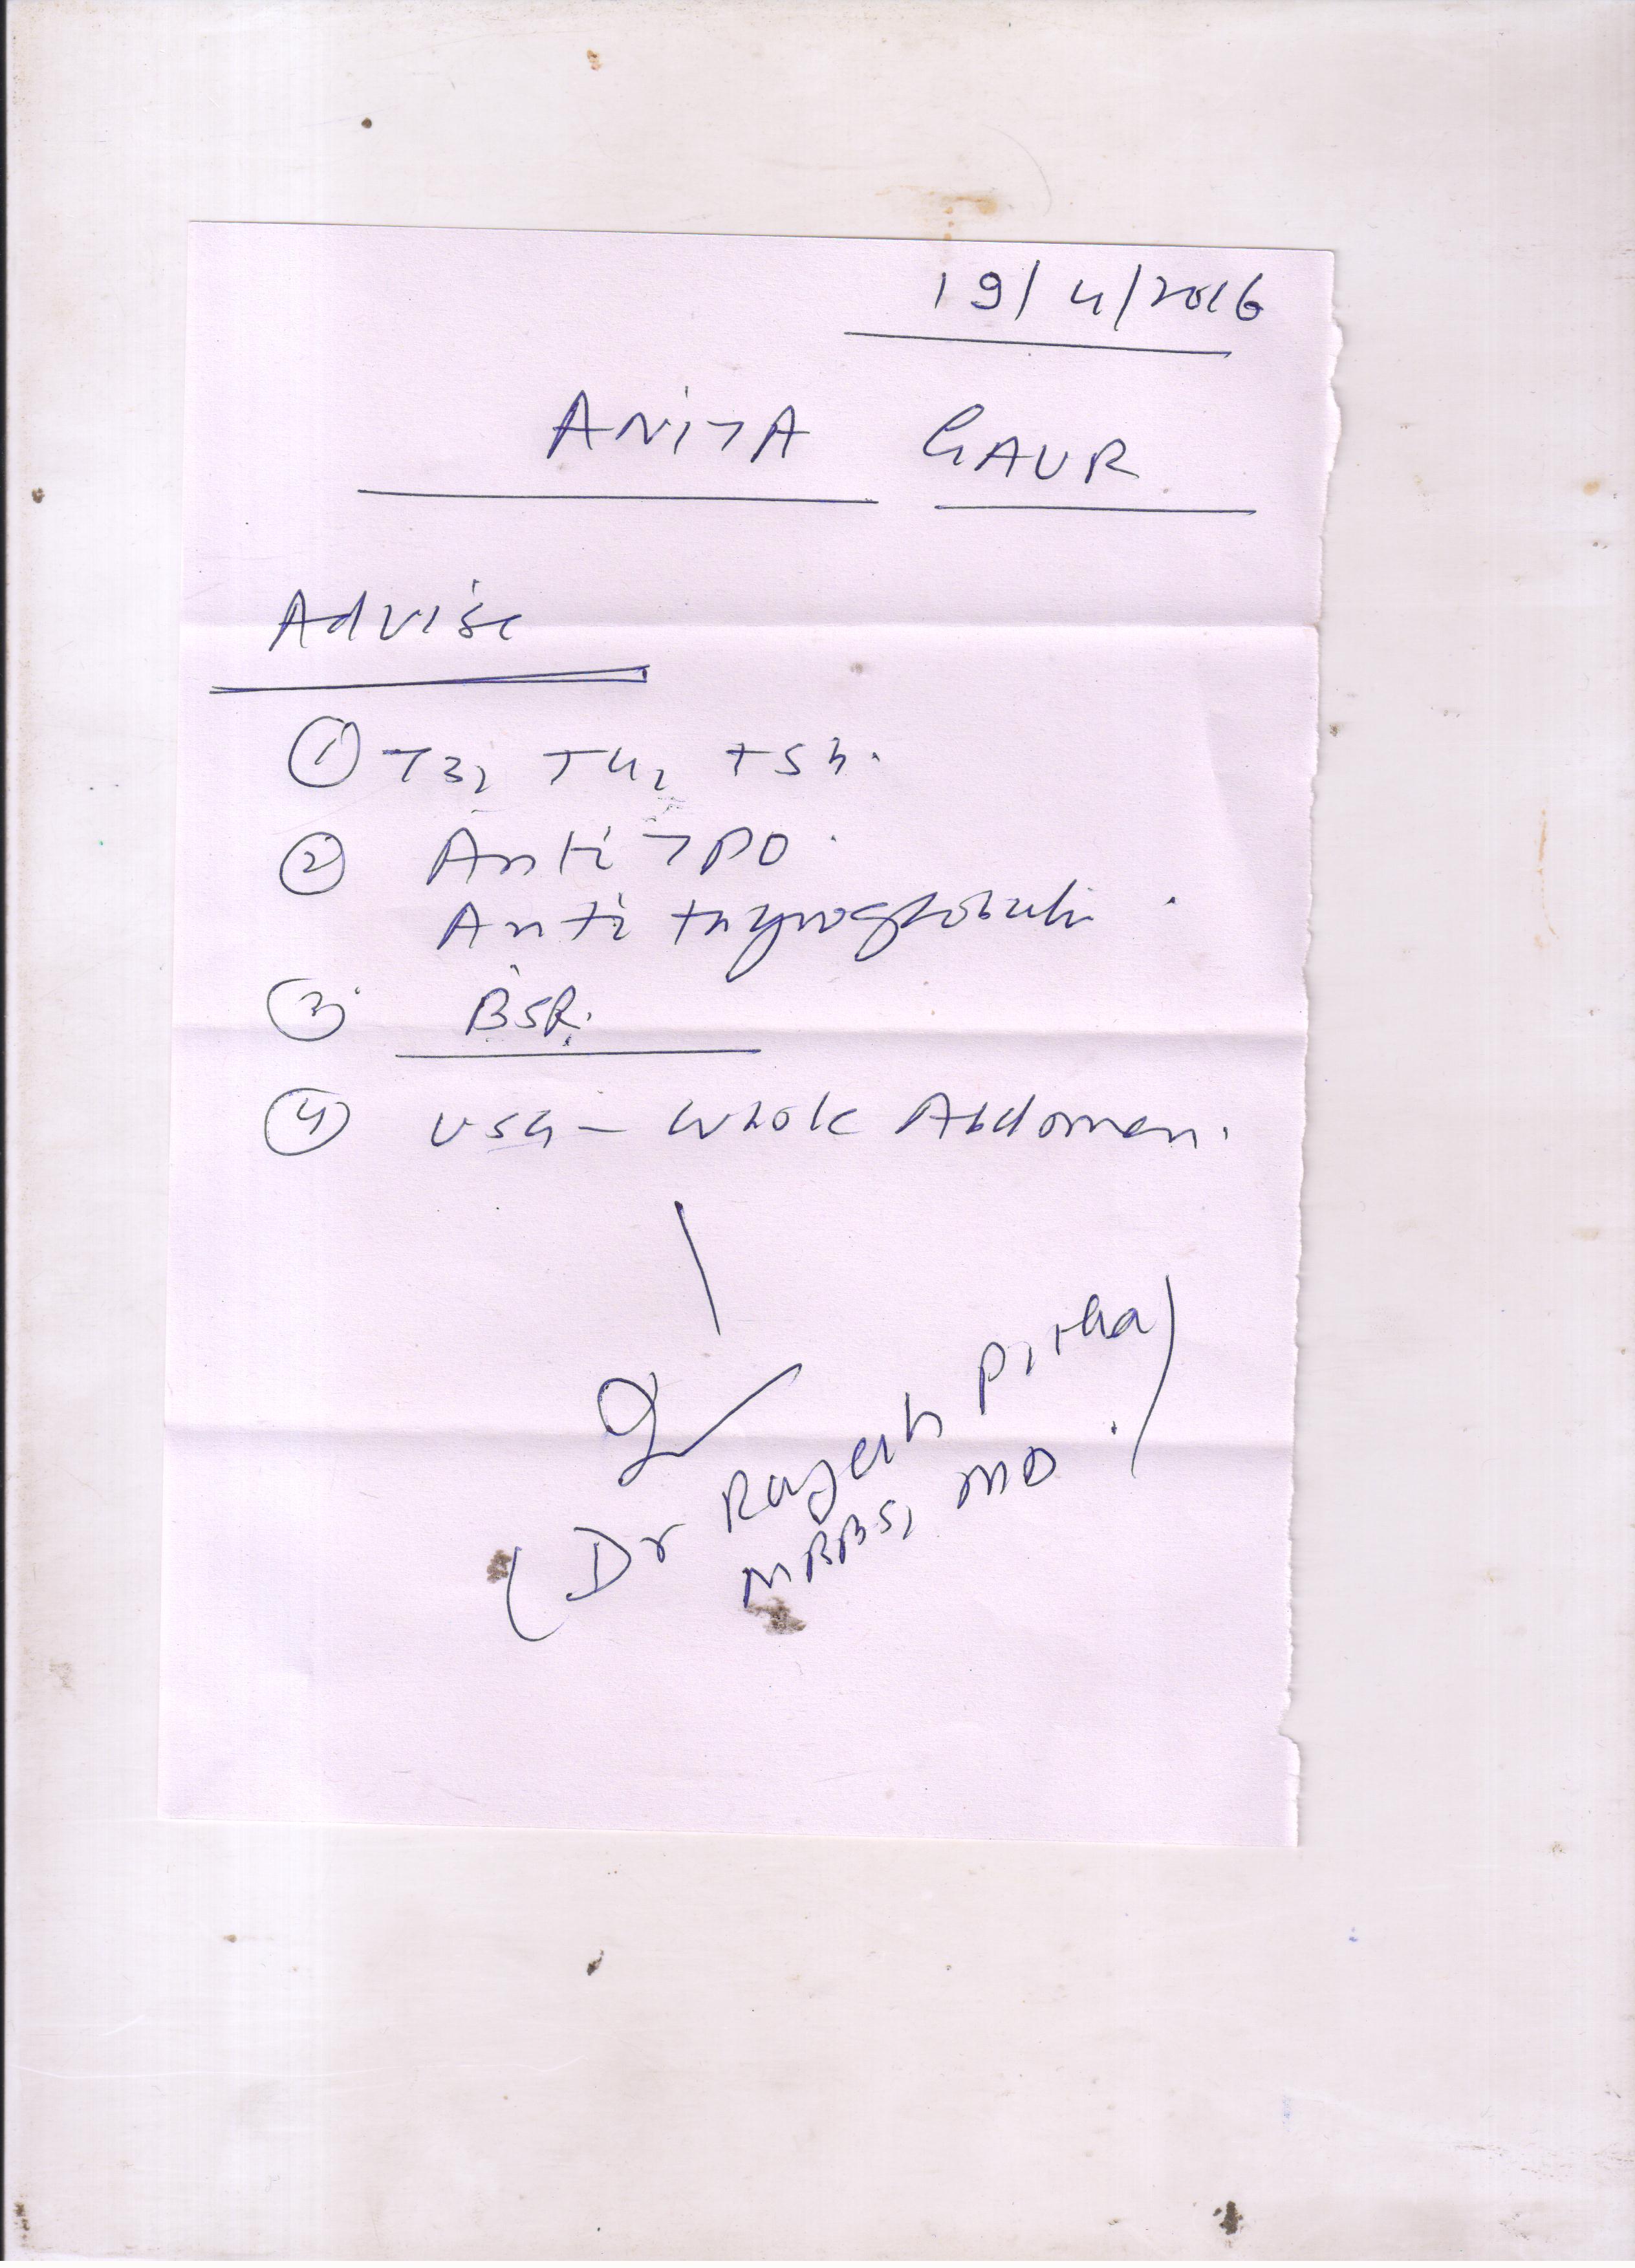 19/4/2016
ANITA GAUR
Advise
① T3, T4, TSh.
② Anti TPO.
Anti thyroglobulin.
③ BSR.
④ USG - Whole Abdomen.
(Dr Rajesh
MBBS, MD.)